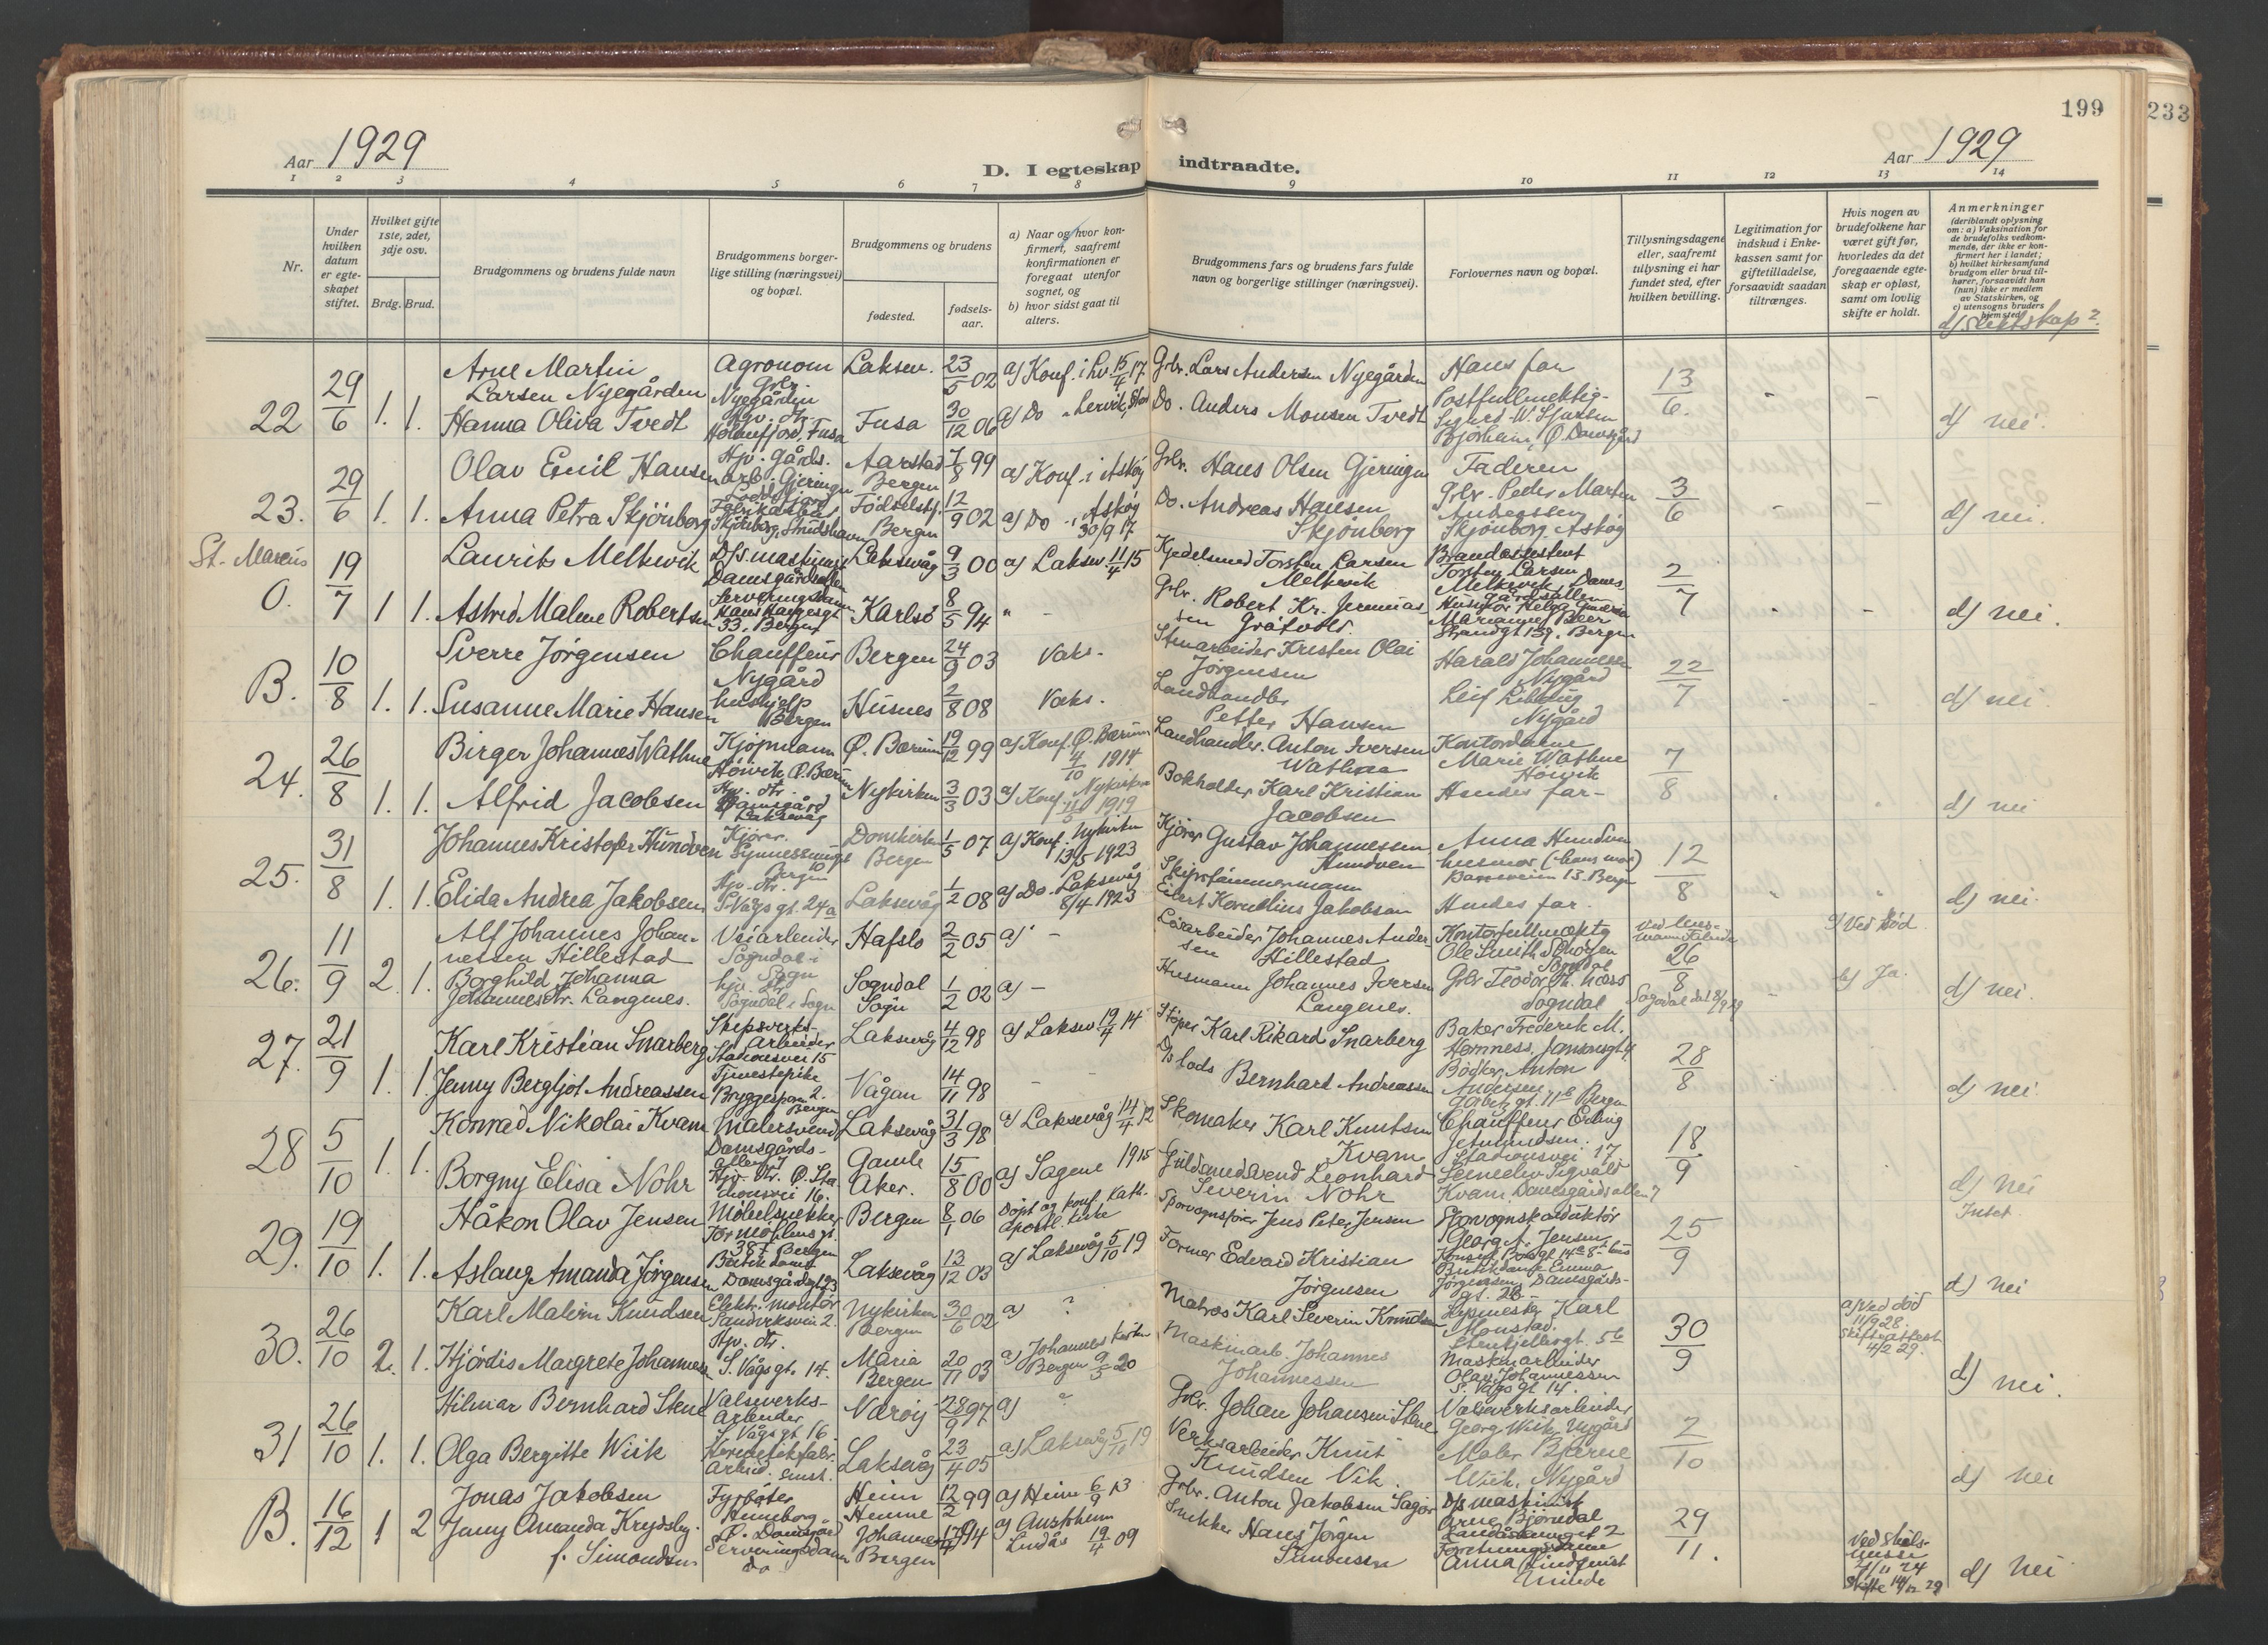 199
233
Aar 1929
D. I egteskap indtraadte.
Aar 1929
1 2 3 4 5 6 7 8 9 10 11 12 13 14
Nr.
Under hvilken datum er egteskapet stiftet.
Hvilket gifte 1ste, 2det, 3dje osv.
Brdg. Brud.
Brudgommens og brudens fulde navn
Brudgommens borgerlige stilling (næringsvei) og bopæl.
Brudgommens og brudens
fødested.
fødselsaar.
a) Naar og hvor konfirmert, saafremt konfirmationen er foregaat utenfor sognet, og
b) hvor sidst gaat til alters.
Brudgommens fars og brudens fars fulde navn og borgerlige stillinger (næringsvei).
Forlovernes navn og bopæl.
Tillysningsdagene eller, saafremt tillysning ei har fundet sted, efter hvilken bevilling.
Legitimation for indskud i Enkekassen samt for giftetilladelse, forsaavidt saadan tiltrænges.
Hvis nogen av brudefolkene har været gift før, hvorledes da det foregaaende egteskap er opløst, samt om lovlig skifte er holdt.
Anmerkninger (deriblandt oplysning om: a) Vaksination for de brudefolks vedkommende, der ikke er konfirmert her i landet; b) hvilket kirkesamfund brudgom eller brud tilhører, forsaavidt han (hun) ikke er medlem av Statskirken, og c) utensogns bruders hjemsted).
d) Slektskap?
22 29/6 1. 1.
Arne Martin Larsen Nyegården
Agronom Nyegården
Laksev. 23/5 02
a) Konf. i Lv. 15/4 17
Grbr. Lars Andersen Nyegården
Hans far
13/6.
Hanna Oliva Tvedt
Hjv. dtr. Fusa
Fusa 30/12 06
a) Do
Do. Anders Monsen Tvedt
Postfullmektig
Damsgård
d) nei.
23. 29/6 1. 1.
Olav Emil Hansen
Hjv. Gårds. arb. Gjeringen
Aarstad Bergen 7/8 99
a) Konf. i Askøy
Grbr. Hans Olsen Gjeringen
Faderen
3/6
Anna Petra Skjönborg
Skjönborg, Strudshavn
Födselsstf. Bergen 12/9 02
a) Do i Askøy 30/9 17
Do. Andreas Hansen Skjönborg
Grbr. Peder Martin
Skjönborg Askøy
d) nei.
St. Marcus
O. 19/7 1 1.
Laurits Melkevik
D/s maskinist Damsgårdsallen
Laksevåg 9/3 00
a) Laksev 11/4 15
Kjedelsmed Torsten Larsen Melkevik
Brandassistent Torsten Larsen Melkevik, Damsgårdsallen
2/7
Astrid Malene Robertsen
Hans Haugesgt 33. Bergen
Karlsö 8/5 94
" -
Grbr. Robert Kr. Jeremiassen Gråtvold.
Strandgt 139. Bergen
d) nei.
B. 10/8 1. 1.
Sverre Jörgensen
Chauffeur Nygård
Bergen 24/9 03
Vaks.
Stenarbeider Kristen Olai Jörgensen
Harald Johannesen Nygård
22/7
Susanne Marie Hansen
hushjelp Bergen
Husnes 2/8 08
Vaks.
Landhandler Petter Hansen
Leif Nygård
d) nei.
24. 26/8 1. 1.
Birger Johannes Wathne
Kjöpmann Hövik Ö. Bærum
Ö. Bærum 19/12 99
a) Konf. Ö. Bærum 4/10 1914
Landhandler. Anton Iversen Wathne
Kontordame Marie Wathne Hövik
7/8
Alfrid Jacobsen
Hjv. dtr. Damsgård Laksevåg
Nykirken 3/3 03
a) Konf. Nykirken 1919
Bokholder Karl Kristian Jacobsen
Hendes far -
d) nei
25. 31/8 1. 1.
Johannes Kristofer Hundven
Kjörer. Bergen
Domkirken Bergen 1/5 07
a) Konf. Nykirken 13/5 1923
Kjörer Gustav Johannessen Hundven
Anna Hundven husmor (hans mor)
12/8
Elida Andrea Jakobsen
Hjv. dtr. S. Vågs gt. 24a
Laksevåg 1/2 08
a) Do. Laksevåg 8/4 1923
Skipstömmermann Eilert Kornelius Jakobsen
Hendes far.
d) nei.
26. 11/9 2. 1.
Alf Johannes Johannessen Hillestad
Veiarbeider Sogndal i Sogn
Hafslo 2/2 05
a) -
Lösarbeider Johannes Andersen Hillestad
Kontorfullmektg Ole Smith
26/8
Ved död
Borghild Johanna Johannesdtr. Langenes.
hjv. dtr. Sogndal i Sogn
Sogndal Sogn 1/2 02
a) -
Husmann Johannes Iversen Langenes.
Grbr Teodor Th. Næss Sogndal
b) Ja.
d) nei.
27. 21/9 1. 1.
Karl Kristian Snarberg
Skipsverksarbeider Stationsvei 15
Laksevåg 4/12 98
a) Laksev 19/4 14
Stöper Karl Rikard Snarberg
Baker Frederik M.
28/8
Jenny Bergljot Andreassen
Tjenestepike Bryggesporn 2. Bergen
Vågan 14/11 98
- -
D/s lods Bernhard Andreassen
Bödker Anton Andersen
d) nei.
28 5/10 1. 1.
Konrad Nikolai Kvam
Malersvend Damsgårdsallen 7
Laksevåg 31/3 98
a) Laksevåg 14/4 12
Skomaker Karl Knutsen Kvam
Chauffeur Erling Stationsvei 17
18/9
Borgny Elisa Nohr
Hjv. dtr. Ö. Stationsvei 16.
Gamle Aker. 15/8 00
a) Sagene 1915
Guldsmedsvend Leonhard Severin Nohr
Sigvald Kvam, Damsgårdsallen 7
d) Nei
29. 19/10 1. 1.
Håkon Olav Jensen
Möbelsnekker Bergen
Bergen 8/1 06
Döpt og konf. Kath. apostl. kirke
Sporvognsförer Jens Peter Jensen
Sporvognskonduktör Georg A. Jensen
25/9
Intet.
Aslaug Amanda Jörgensen
Butikdame Damsgårdsgt 193
Laksevåg 13/12 03
a) Laksevåg 5/10 19
Former Edvard Kristian Jörgensen
Butikdame Emma Jörgensen Damsgårdsgt. 26
d) nei
30. 26/10 2. 1.
Karl Malvin Knudsen
Elektr. montör Sandviksvei 2.
Nykirken Bergen 30/6 02
a) ?
Matros Karl Severin Knudsen
Karl Monstad.
30/9
a) Ved död 11/9 28. Skifteattest 4/2 29.
Hjördis Margrete Johannessen
Hjv. dtr. S. Vågsgt. 14.
Maria Bergen 20/11 03
a) Johannes kirken Bergen 9/5 20
Maskinarb. Johannes Johannessen
Maskinarbeider Olav Johannessen S. Vågs gt 14.
d) nei.
31 26/10 1. 1.
Hilmar Bernhard Stene
Valseverks-Arbeider S. Vågsgt 16
Naröy 28/9 97
a) ?
Grbr. Johan Johansen Stene
Valseverksarbeider Georg Wiik Nygård
2/10
Olga Bergitte Wiik
Laksevåg 23/4 05
a) Laksevåg 5/10 19
Verksarbeider Knut Knudsen Vik.
Maler Bjarne Wiik, Nygård
d) nei
B. 16/12 1 2
Jonas Jakobsen
Fyrböter Ö. Damsgård
Heim Hemne 12/2 99
a) Heim 6/9 13
Grbr. Anton Jakobsen
D/s maskinist Arne Björndal
29/11.
Jenny Amanda Krydsby. f. Simonsen
Serveringsdame do
Johannes Bergen 94
a) Austrheim Lindås 19/4 09
Snekker Hans Jörgen Simonsen
Anna Lindqvist Minde
Ved Skilsmisse 24 Skifte 29
d) nei